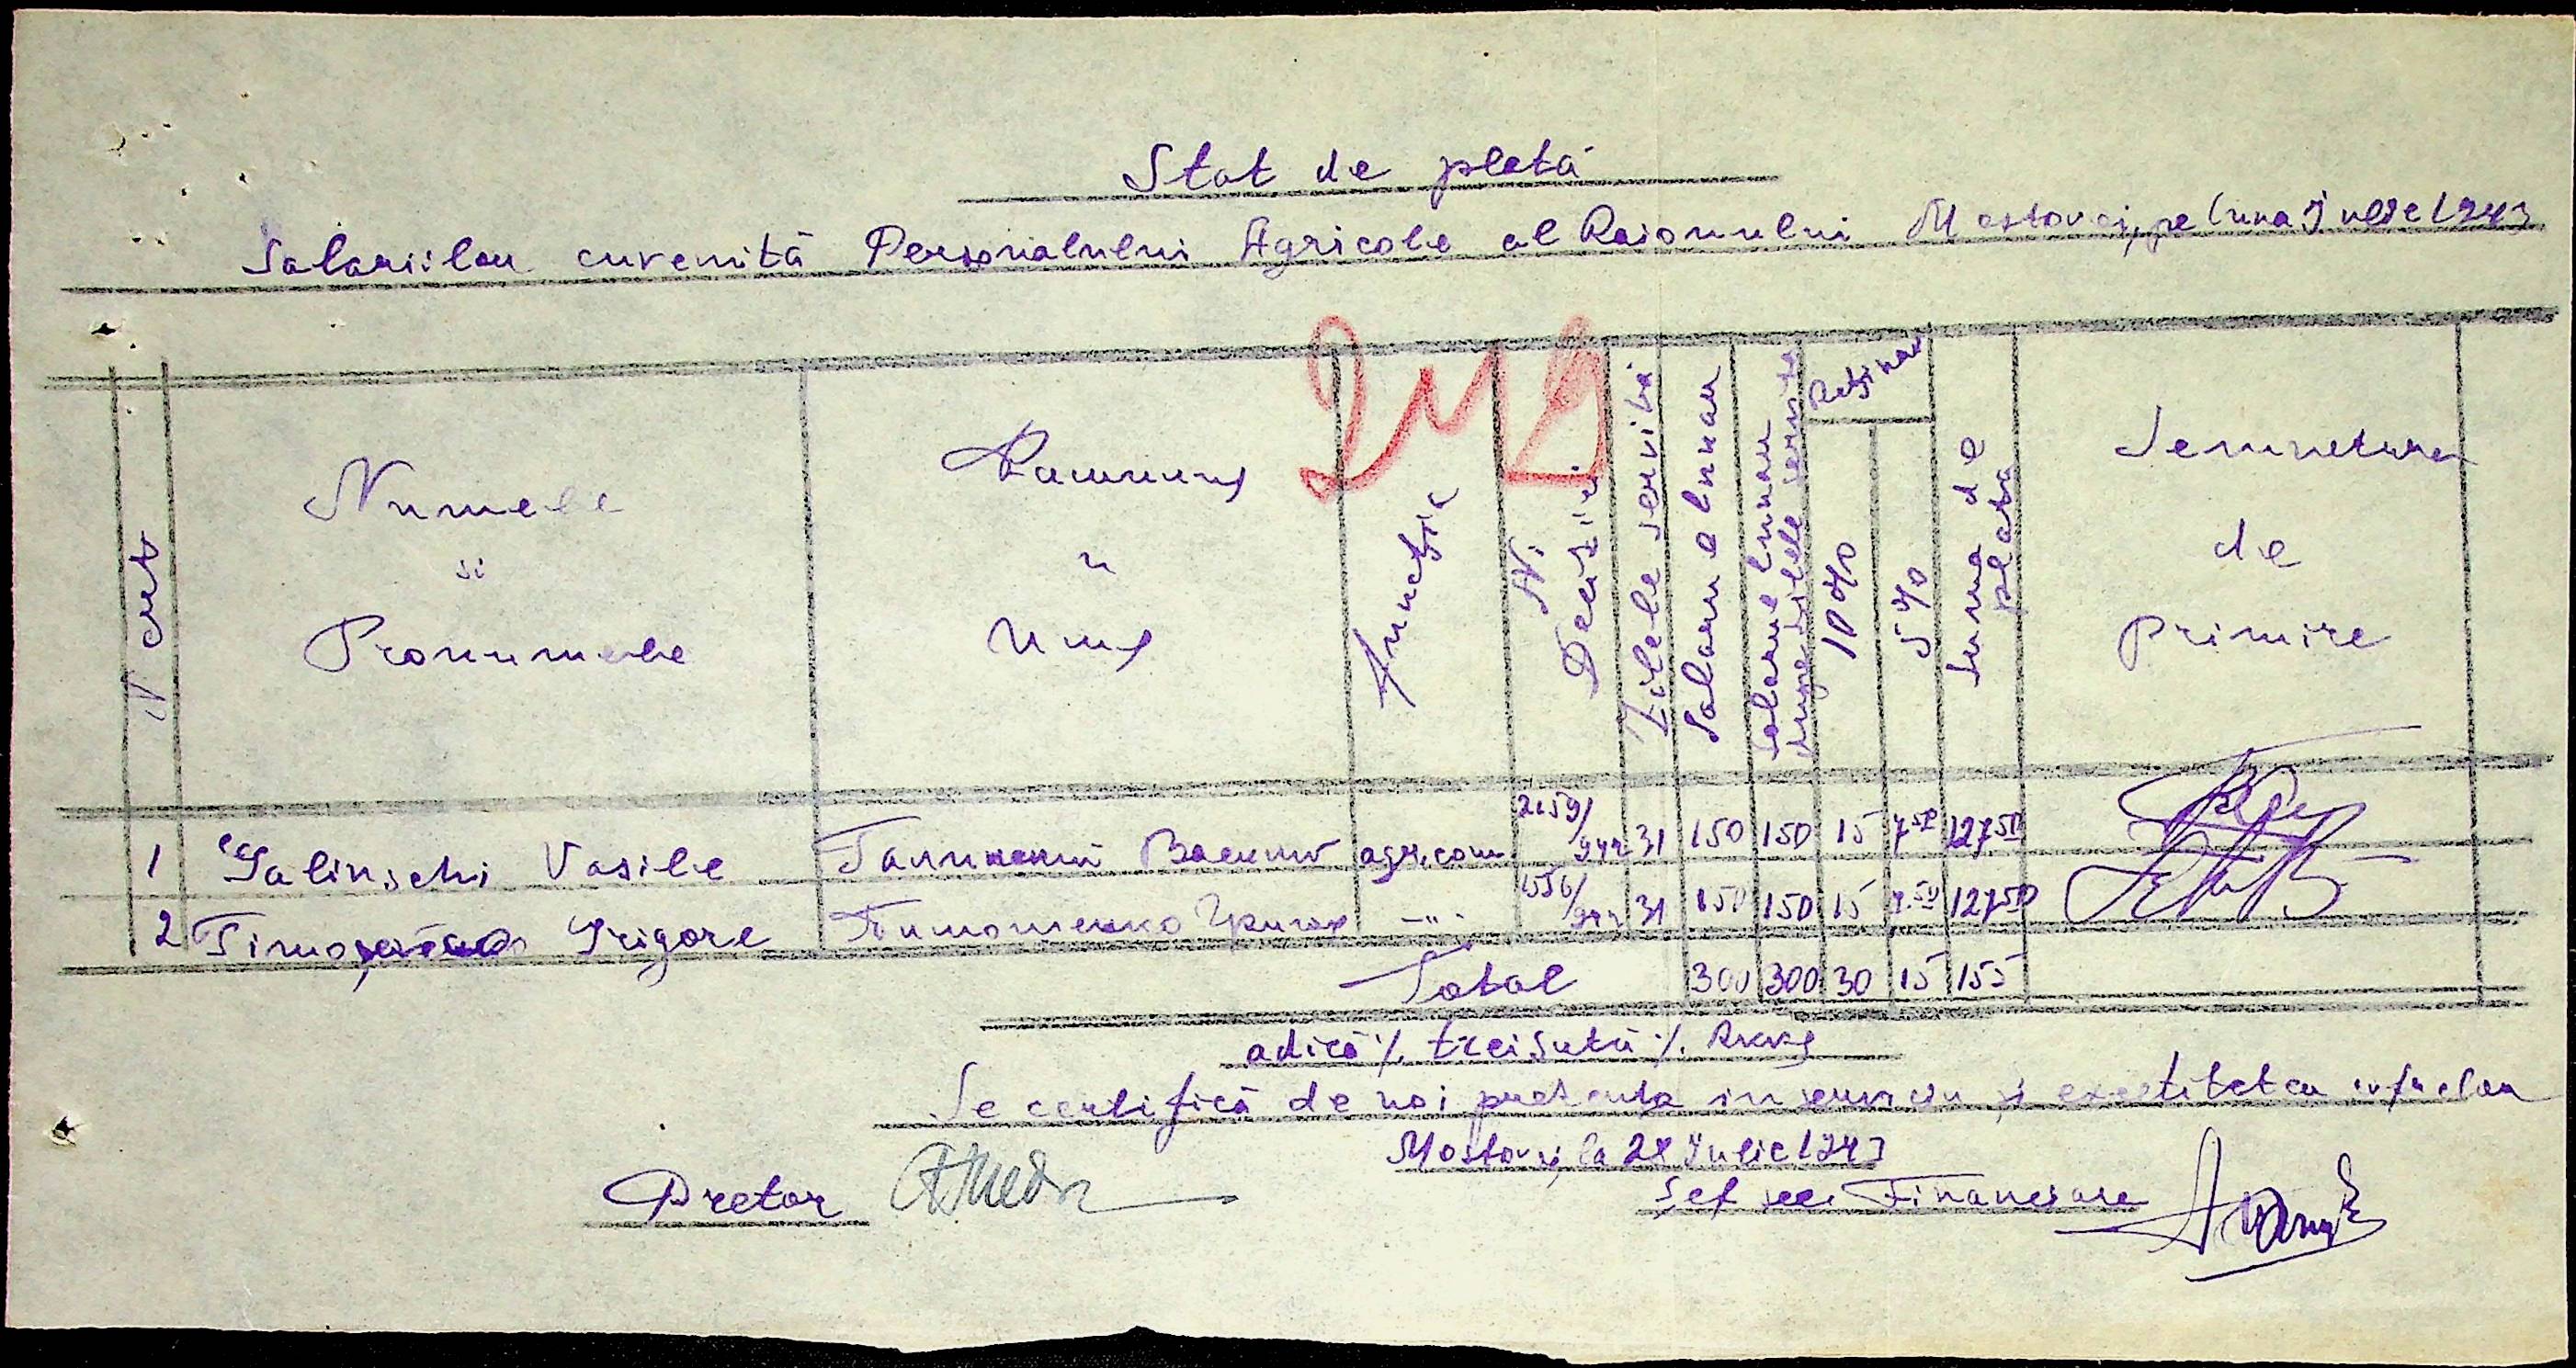 Stat de plată
Salariilor cuvenită Personalului Agricole al Raionului Mostovoi, pe luna Iulie 1943
N crt
Numele
si
Pronumele
Фамилия
и
Имя
Funcția
Nr
Deciziei
Zilele servită
Salarul lunar
Salarul lunar
după zilele servite
Rețineri
10%
5%
Suma de
plată
Semnatura
de
primire
1 Galinschi Vasile Галинский Василий agricom 31 150 150 15 7.50 127.50
2 Grigore Тимошенко -"- 31 150 150 15 7.50 127.50
Total 300 300 30 15 155
adică ./. treisută ./.
Se certifică de noi prezența in serviciu și
Mostovoi, la 28 Iulie 1943
Pretor
Șef sec Financiare